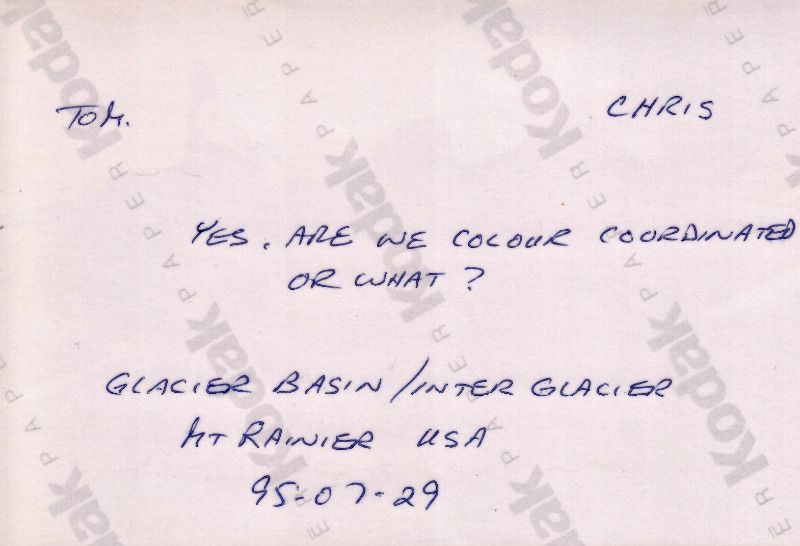 TOM. CHRIS
YES. ARE WE COLOUR COORDINATED
OR WHAT?
GLACIER BASIN/INTER GLACIER
MT RAINIER USA
95-07-29
Kodak PAPER
Kodak PAPER
Kodak PAPER
Kodak PAPER
Kodak PAPER
Kodak PAPER